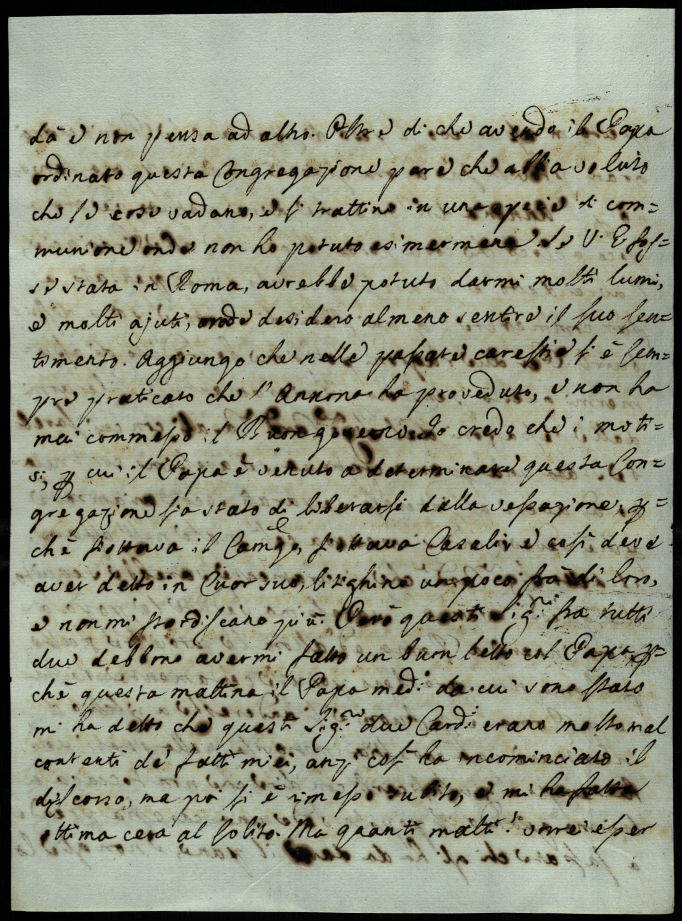 dà e non pensa ad altro. Oltre di che avendo il Papa
ordinato questa Congregazione pare che abbia voluto
che le cose vadano, e si trattino in una specie di com=
munione onde non ho potuto esimermene. Se V. E. fos=
se stata in Roma, avrebbe potuto darmi molti lumi,
e molti ajuti, onde desidero almeno sentire il suo sen=
timento. Aggiungo che nelle passate carestie si è sem=
pre praticato che l'Annona ha proveduto, e non ha
mai commesso il Buon governo. Io credo che i moti=
vi, p cui il Papa è venuto a determinare questa Con=
gregazione sia stato di liberarsi dalla vessazione, p=
chè frottava il Camgo, frottava Casali, e così deve
aver detto in Cuor suo, litighino un poco frà di loro,
e non mi stordiscano più. Però questi Sigri fra tutti
due debbono avermi fatto un buon letto col Papa, p=
chè questa mattina il Papa medo da cui sono stato
mi ha detto che questi Sigri due Cardi erano molto mal
contenti de fatti miei, anzi così ha incominciato il
discorso, ma poi si è rimesso subito, e mi ha fatto
ottima cera al solito. Ma quanti matti! vorrei esser